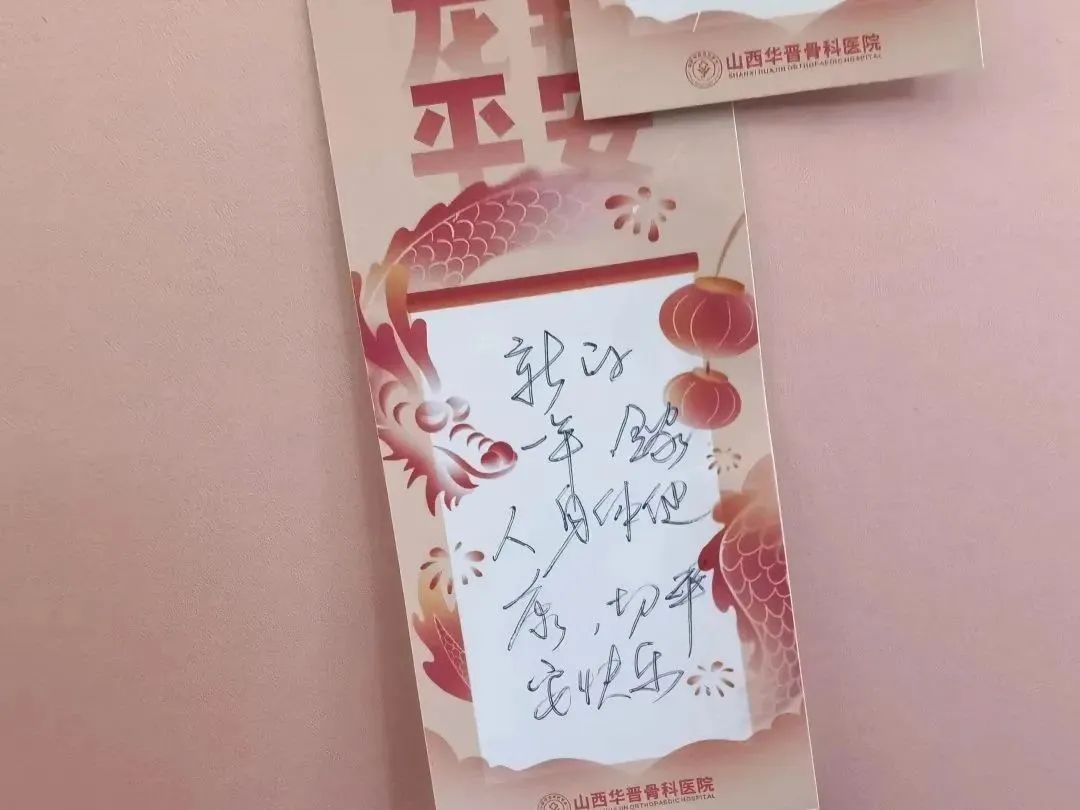 山西华晋骨科医院
SHANXI HUAJIN ORTHOPAEDIC HOSPITAL
龙
平安
新的
一年 全家
人身体健
康，一切平
安快乐
山西华晋骨科医院
HUAJIN ORTHOPAEDIC HOSPITAL